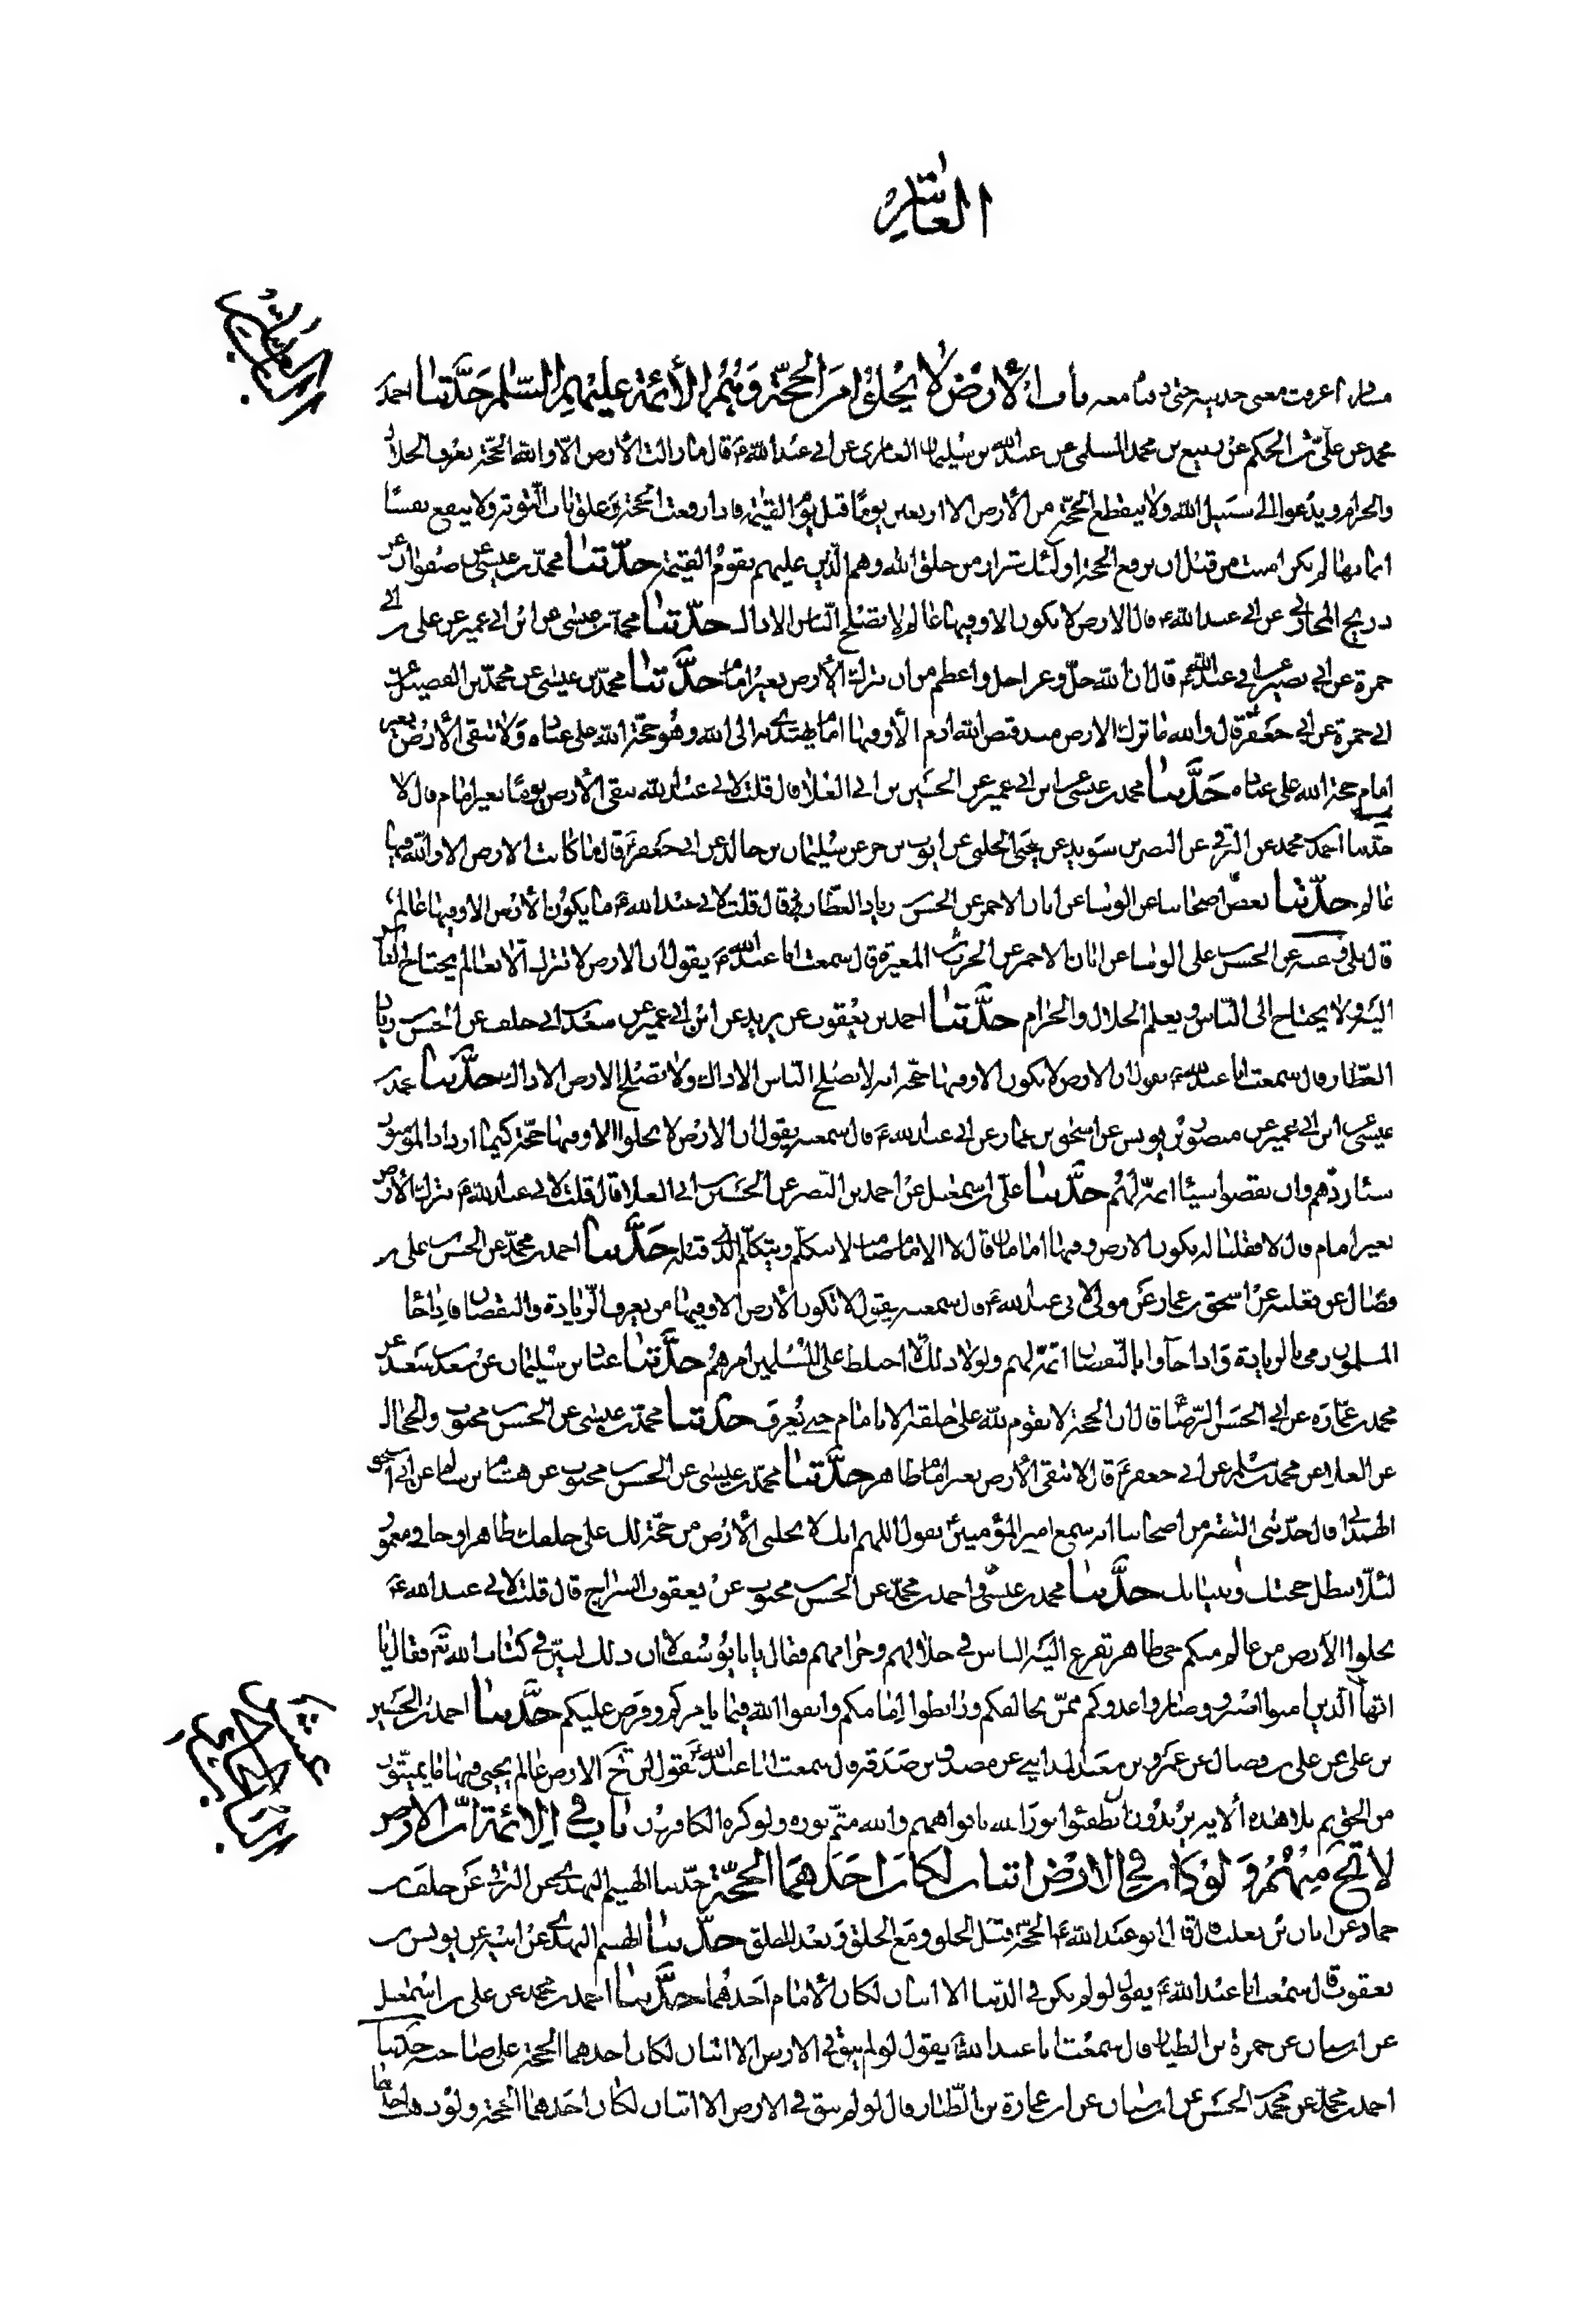 العاشر
باب الأرض لا يخلوا من الحجة وهم الأئمة عليهم السلم حدثنا احمد
محمد عن علي بن الحكم عن ربيع بن محمد المسلمي عن عبد الله بن سليمان العامري عن ابي عبد الله ع قال ما زالت الأرض الا ولله الحجة يعرف الحلال
والحرام ويدعوا الى سبيل الله ولا ينقطع الحجة من الأرض الا اربعين يوما قبل يوم القيمة فاذا رفعت الحجة وغلق باب التوبة ولا ينفع نفسا
ايمانها لم تكن امنت من قبل ان ترفع الحجة اولئك شرار من خلق الله وهم الذين عليهم يقوم القيمة حدثنا محمد بن عيسى عن صفوان عن
ذريح المحاربي عن ابي عبد الله ع قال الارض لا يكون الا وفيها عالم لا يصلح الناس الا ذاك حدثنا محمد بن عيسى عن ابن ابي عمير عن علي بن ابي
حمزة عن ابي بصير عن ابي عبد الله ع قال ان الله جل وعز اجل واعظم من ان يترك الأرض بغير امام حدثنا محمد بن عيسى عن محمد بن الفضيل عن
ابي حمزة عن ابي جعفر ع قال والله ما ترك الارض منذ قبض الله ادم الا وفيها امام يهتدى به الى الله وهو حجة الله على عباده ولا تبقى الأرض بغير
امام حجة الله على عباده حدثنا محمد بن عيسى عن ابن ابي عمير عن الحسين بن ابي العلا قال قلت لابي عبد الله تبقى الأرض يوما بغير امام قال لا
حدثنا احمد بن محمد عن البرقي عن النضر بن سويد عن يحيى الحلبي عن ايوب بن حر عن سليمان بن خالد عن ابي جعفر ع قال ما كانت الارض الا ولله فيها
عالم حدثنا بعض اصحابنا عن الوشا عن ابان الاحمر عن الحسن زياد العطار قال قلت لابي عبد الله ع ما يكون الأرض الا وفيها عالم
قال بلى وعنه عن الحسن بن علي الوشا عن ابان الاحمر عن الحرث بن المغيرة قال سمعت ابا عبد الله ع يقول ان الارض لا تترك الا بعالم يحتاج الناس
اليه ولا يحتاج الى الناس ويعلم الحلال والحرام حدثنا احمد بن يعقوب عن يزيد عن ابن ابي عمير عن سعد ابي خلف عن الحسن زياد
العطار قال سمعت ابا عبد الله ع يقول ان الارض لا يكون الا وفيها حجة انه لا يصلح الناس الا ذاك ولا تصلح الارض الا ذاك حدثنا محمد بن
عيسى عن ابن ابي عمير عن منصور بن يونس عن اسحق بن عمار عن ابي عبد الله ع قال سمعته يقول ان الارض لا يخلوا الا وفيها حجة كيما ان زاد المؤمنون
شيئا ردهم وان نقصوا شيئا اتمه لهم حدثنا علي بن اسمعيل عن احمد بن النضر عن الحسين بن ابي العلا قال قلت لابي عبد الله ع تترك الأرض
بغير امام قال لا فقلنا له يكون الارض وفيها امامان قال لا الا امام صامت لا يتكلم ويتكلم الذي قبله حدثنا احمد بن محمد عن الحسن بن علي بن
فضال عن ثعلبة عن اسحق بن عمار عن مولى لابي عبد الله ع قال سمعته يقول لا تكون الأرض الا وفيها من يعرف الزيادة والنقصان فاذا جا
المسلمون رمى بالزيادة واذا جاؤا بالنقصان اتمه لهم ولولا ذلك لاختلط على المسلمين امرهم حدثنا عباد بن سليمان عن سعد بن سعد عن
محمد بن عماره عن ابي الحسن الرضا ع قال ان الحجة لا تقوم لله على خلقه الا بامام حي يعرف حدثنا محمد بن عيسى عن الحسن بن محبوب والحجال
عن العلا عن محمد بن مسلم عن ابي جعفر ع قال لا تبقى الأرض بغير امام ظاهر حدثنا محمد بن عيسى عن الحسن بن محبوب عن هشام بن سالم عن ابي اسحق
الهمداني قال حدثني الثقة من اصحابنا انه سمع امير المؤمنين ع يقول اللهم انك لا تخلي الأرض من حجة لك على خلقك ظاهر او خافي مغمور
لئلا تبطل حجتك وبيناتك حدثنا محمد بن عيسى واحمد بن محمد عن الحسن بن محبوب عن يعقوب السراج قال قلت لابي عبد الله ع
تخلوا الأرض من عالم منكم حي ظاهر تفزع اليه الناس في حلالهم وحرامهم فقال يا با يوسف لا ان ذلك لبين في كتاب الله تع فقال يا
ايها الذين امنوا اصبروا وصابروا عدوكم ممن يخالفكم ورابطوا امامكم واتقوا الله فيما يامركم وفرض عليكم حدثنا احمد بن الحسين
بن علي عن علي بن فضال عن عمرو بن سعيد المدايني عن مصدق بن صدقة قال سمعت ابا عبد الله ع يقول لن تخ الارض عالم يحيى فيها ما يميتون
من الحق ثم تلا هذه ألاية يريدون ان يطفئوا نور الله بافواههم والله متم نوره ولو كره الكافرون باب في الائمة ان الارض
لا تخ منهم ولو كان في الارض اثنان لكان احدهما الحجة حدثنا الهيثم النهدي عن البرقي عن خلف بن
حماد عن ابان بن تغلب قال قال ابو عبد الله ع الحجة قبل الخلق ومع الخلق وبعد الخلق حدثنا الهيثم النهدي عن ابيه عن يونس بن
يعقوب قال سمعت ابا عبد الله ع يقول لو لم يكن في الدنيا الا اثنان لكان الأمام احدهما حدثنا احمد بن محمد عن علي بن اسمعيل
عن ابن سنان عن حمزة بن الطيار قال سمعت ابا عبد الله ع يقول لو لم يبق في الارض الا اثنان لكان احدهما الحجة على صاحبه حدثنا
احمد بن محمد عن محمد بن الحسن عن ابن سنان عن ابن عمارة بن الطيار قال لو لم يبق في الارض الا اثنان لكان احدهما الحجة ولو ذهب احدهما